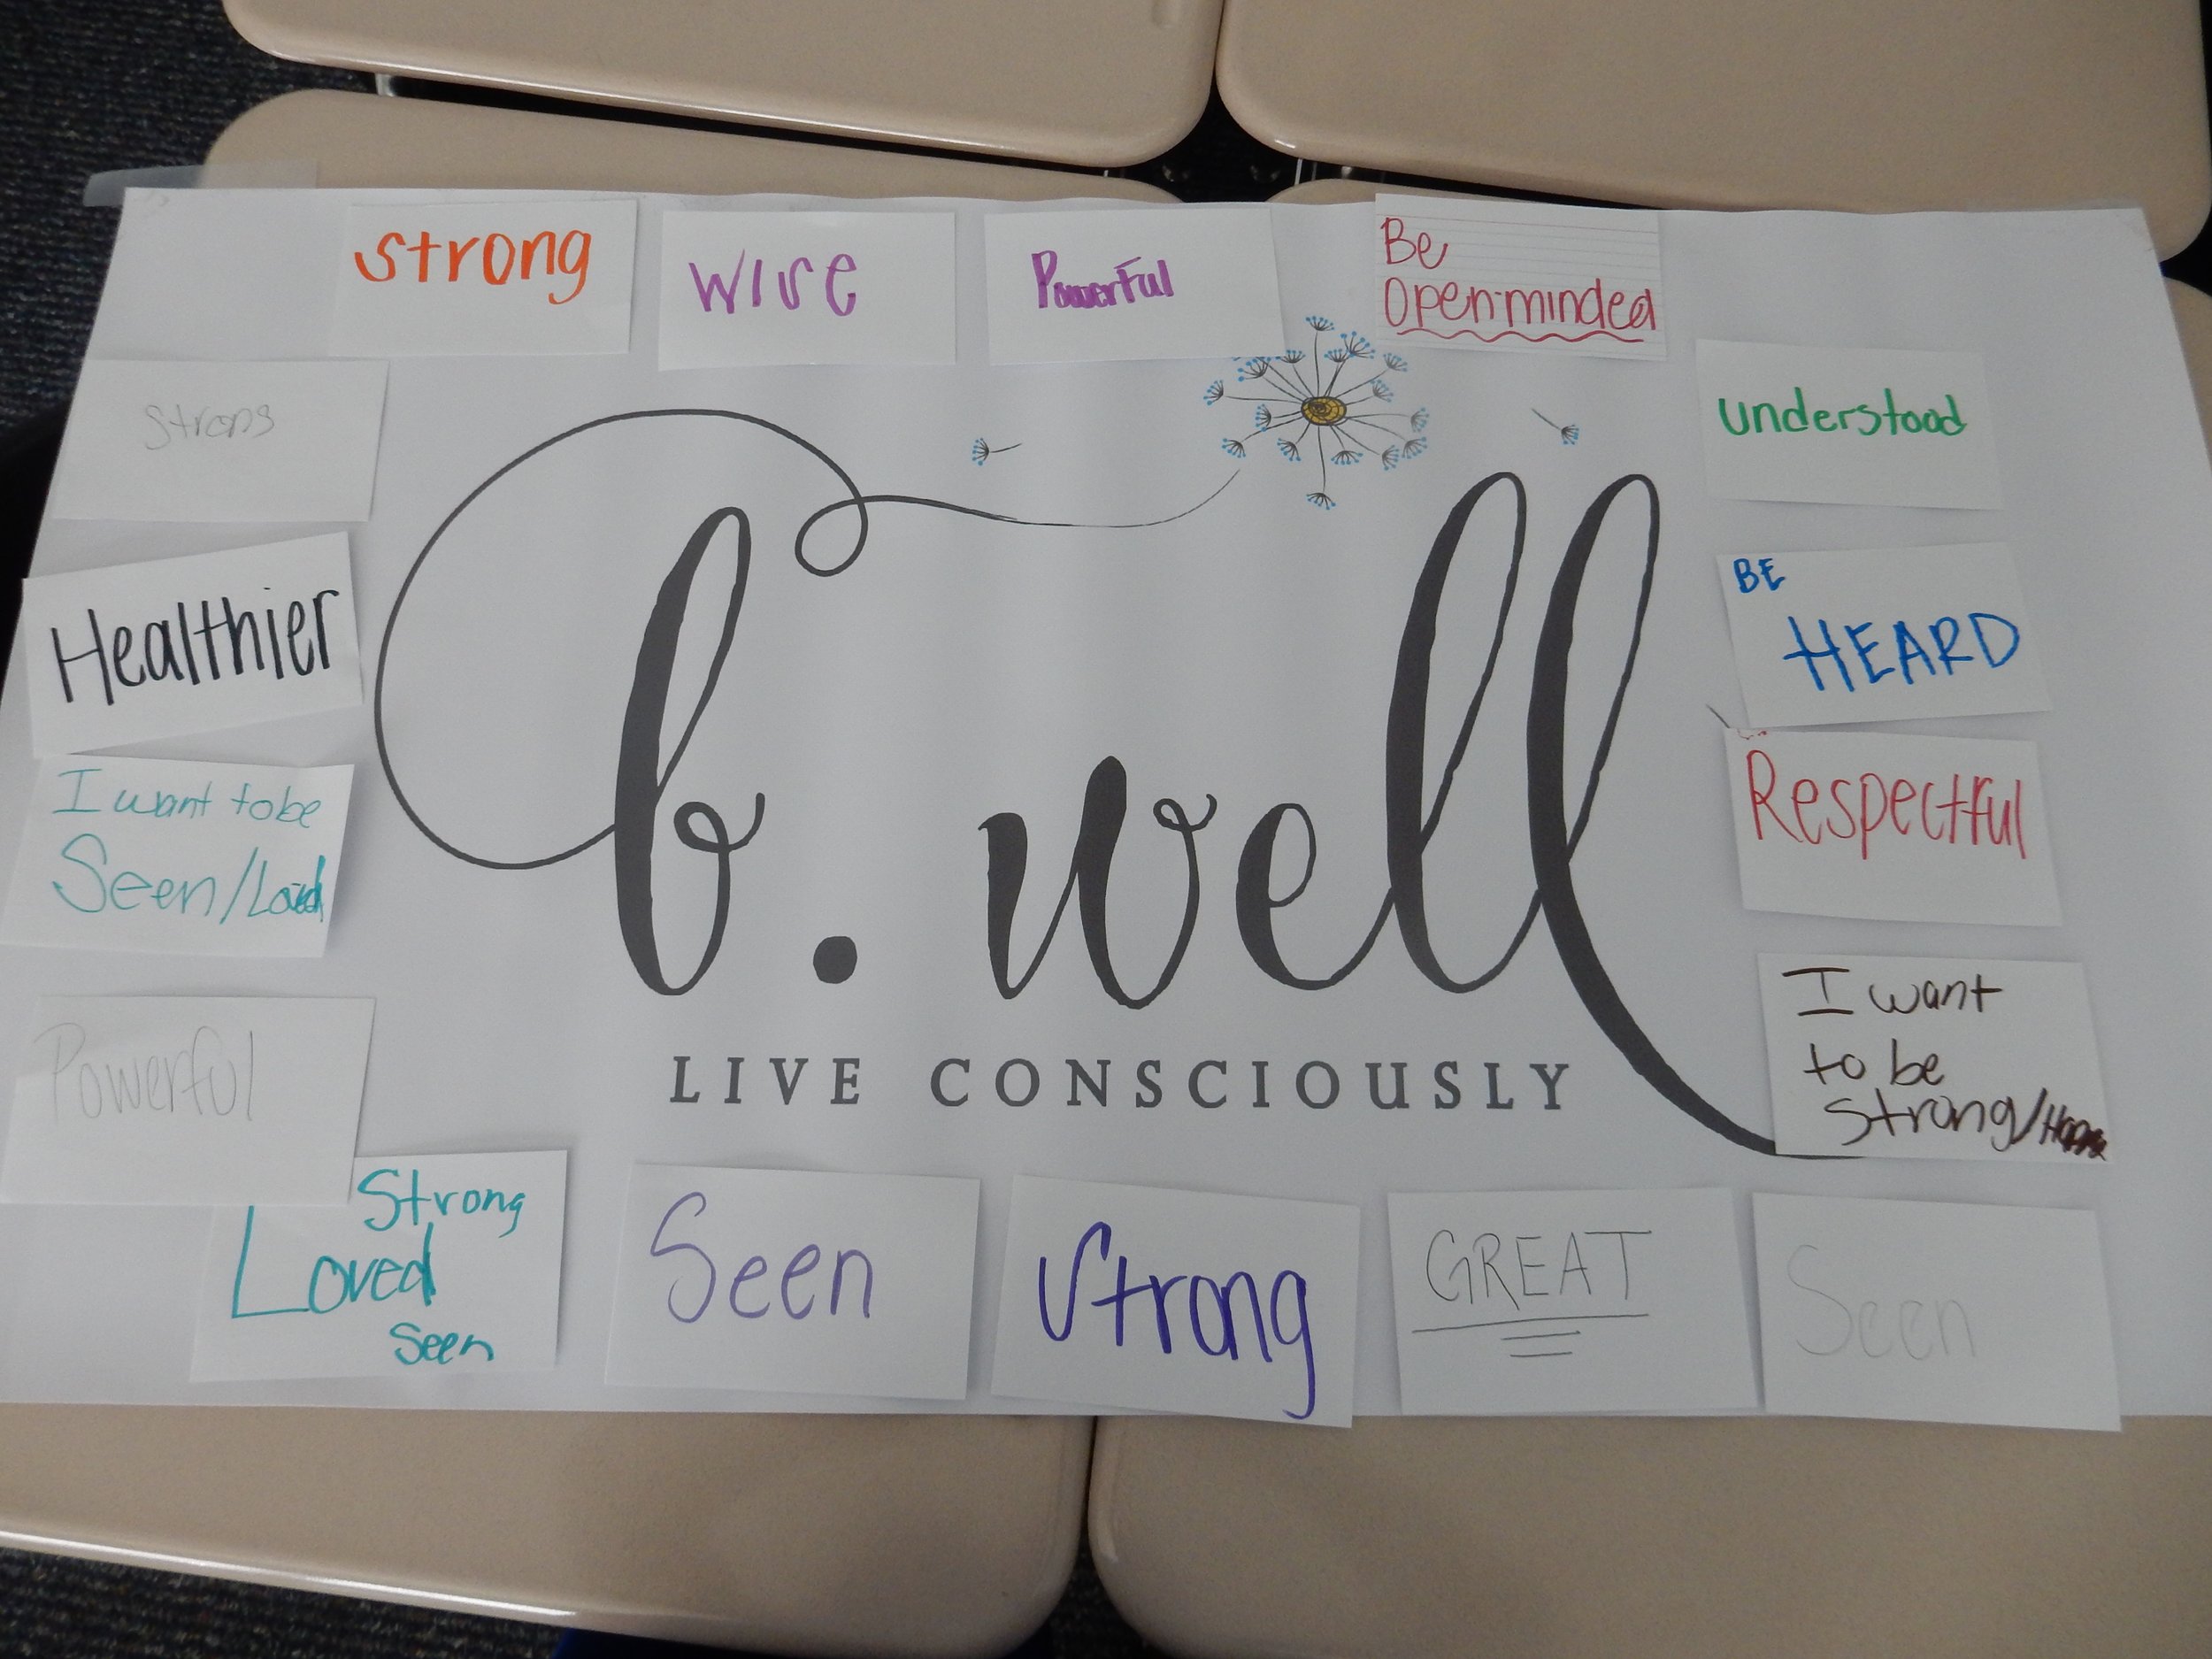 Strong
Wise
Powerful
Be
Open-minded
Strong
understood
Healthier
BE
HEARD
I want to be
Seen/Loved
Respectful
b. well
LIVE CONSCIOUSLY
Powerful
I want
to be
Strong/
Strong
Loved
Seen
Seen
Strong
GREAT
Seen